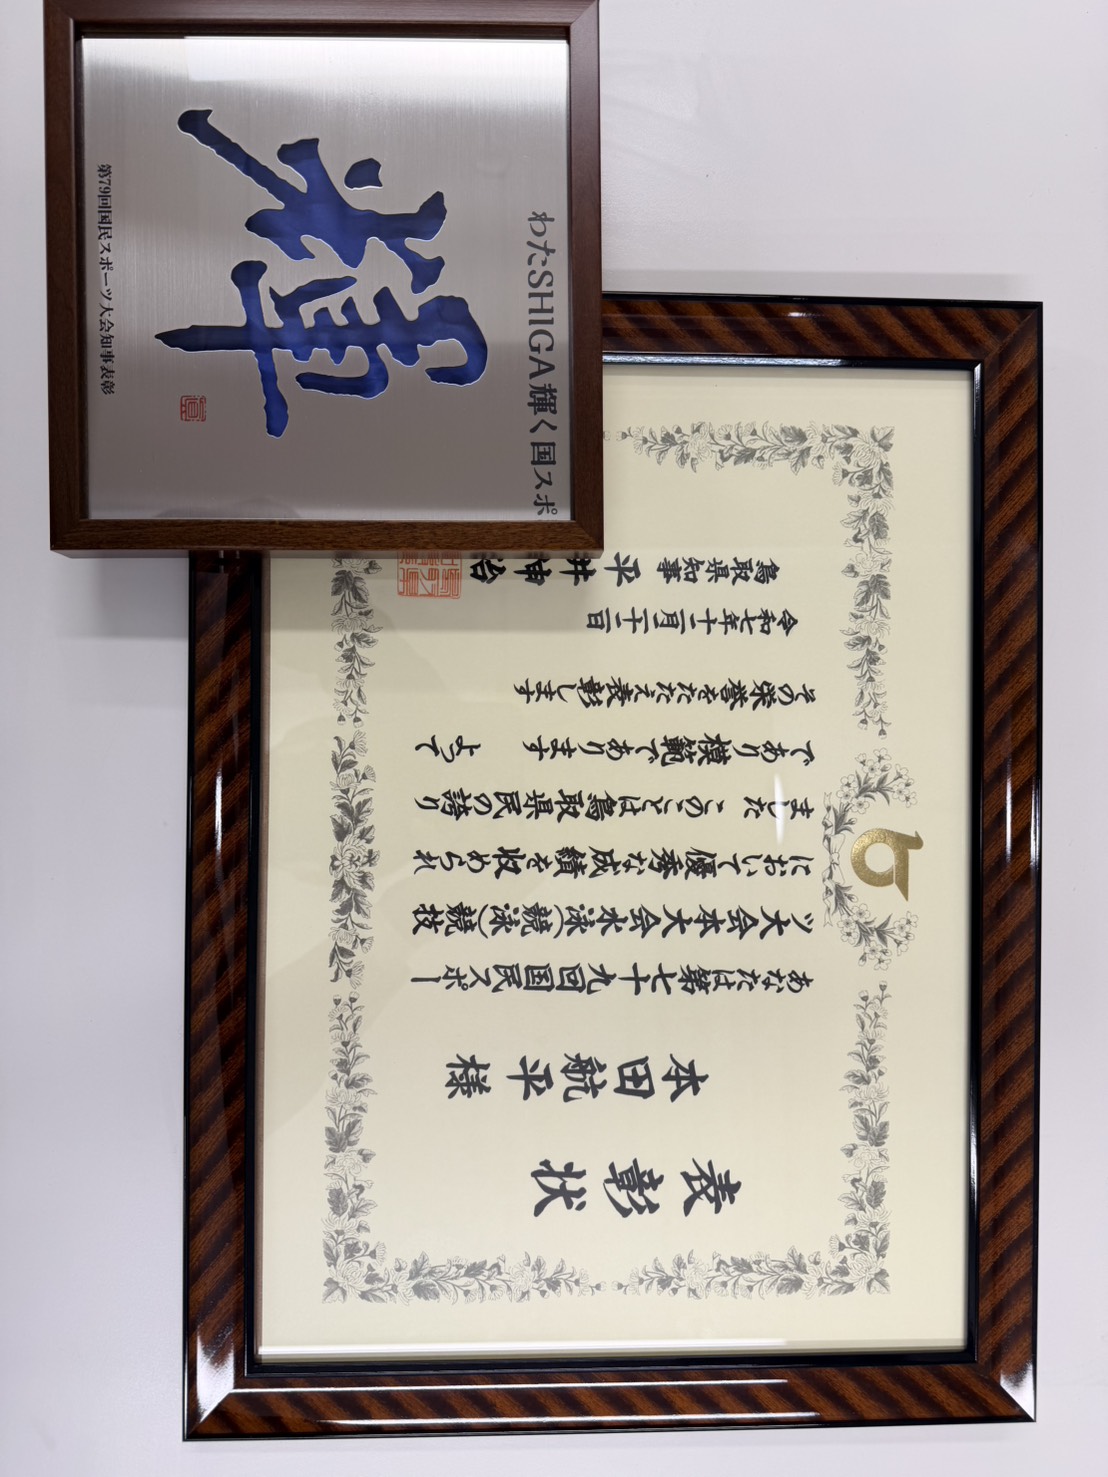 わたSHIGA輝く国スポ
輝
第79回国民スポーツ大会知事表彰
表彰状
本田航平様
あなたは第七十九回国民スポー
ツ大会本大会水泳(競泳)競技
において優秀な成績を収められ
ました このことは鳥取県民の誇り
であり模範であります よって
その栄誉をたたえ表彰します
令和七年十一月二十二日
鳥取県知事 平井伸治